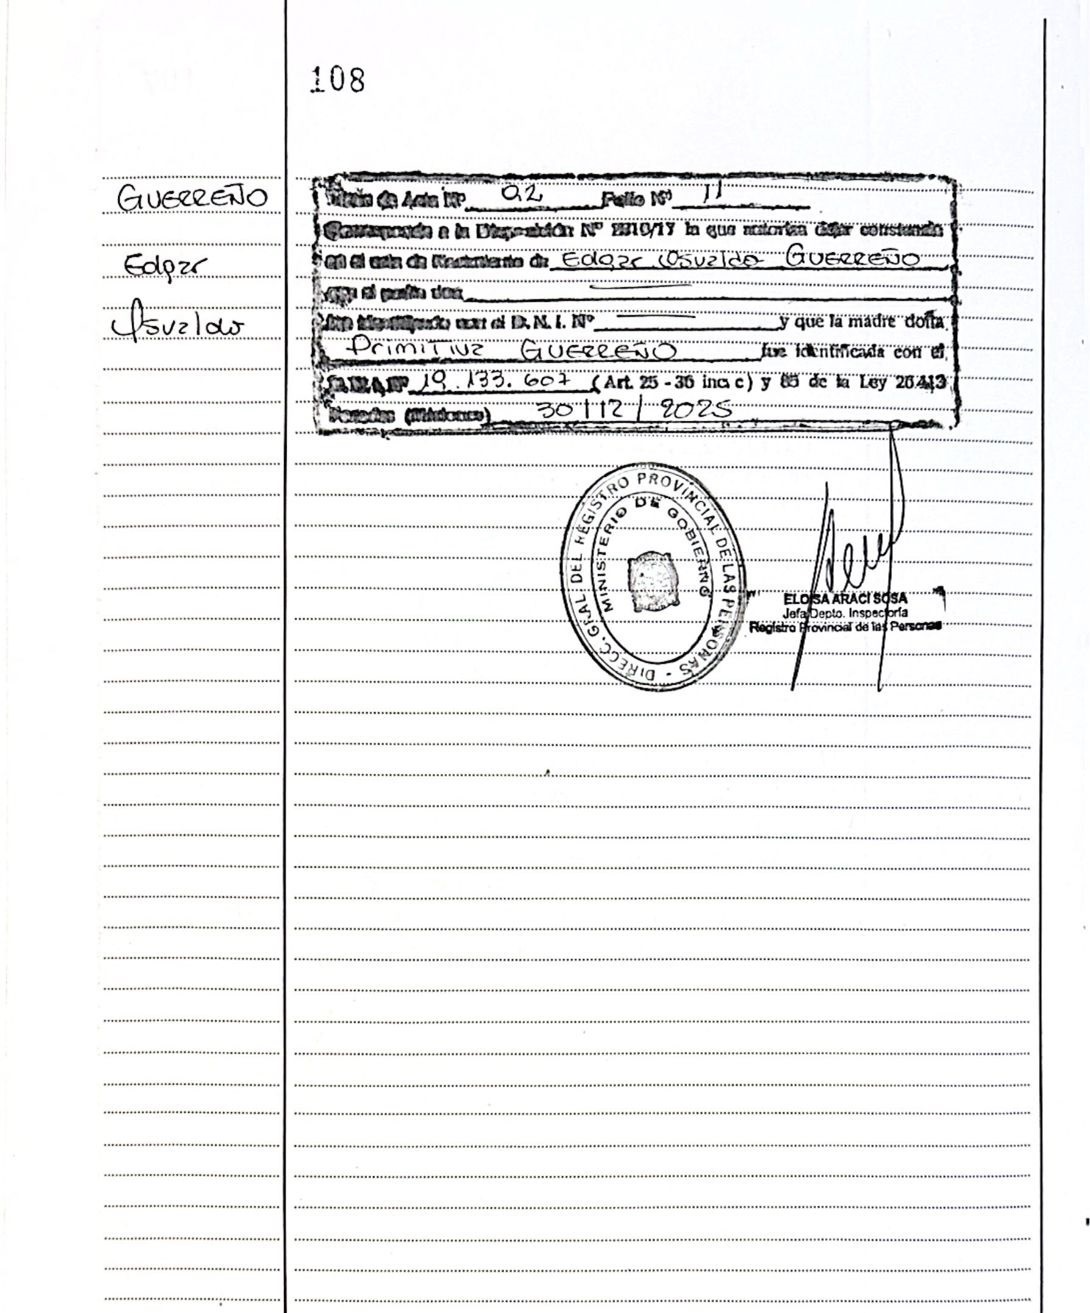 108
GUERREÑO
Edgar
Osvaldo
de Acta Nº 92 Folio Nº 11
Corresponde a la Disposición Nº 2310/17 la que autoriza dejar constancia
en el acta de Nacimiento de Edgar Osvaldo GUERREÑO
que el padre don
fue identificado con el D. N. I. Nº y que la madre doña
Primitiva GUERREÑO fue identificada con el
Nº 19.133.607 (Art. 25 - 36 inc. c) y 85 de la Ley 26413
Posadas (Misiones) 30/12/2025
DIRECC. GRAL DEL REGISTRO PROVINCIAL DE LAS PERSONAS -
MINISTERIO DE GOBIERNO
ELOISA ARACI SOSA
Jefa Depto. Inspectoría
Registro Provincial de las Personas